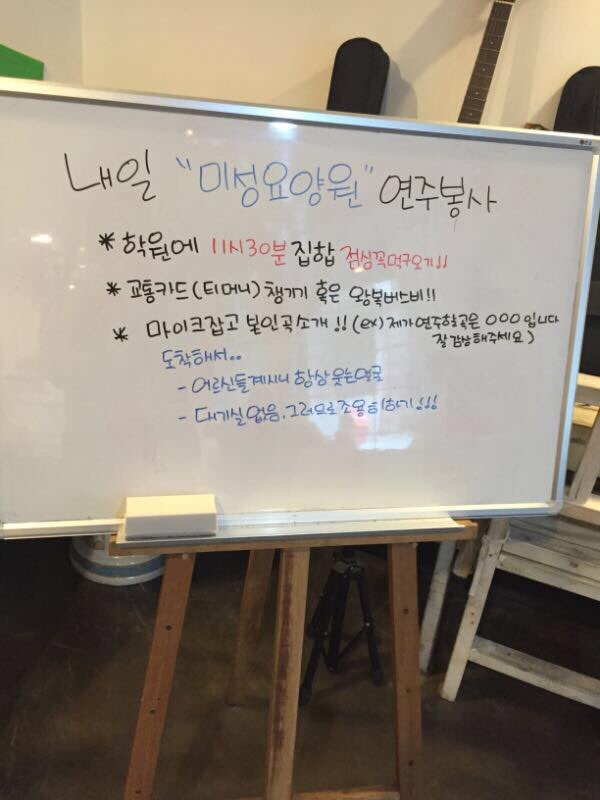 내일 "미성요양원" 연주봉사
* 학원에 11시30분 집합 점심꼭먹구오기!!
* 교통카드(티머니) 챙기기 혹은 왕복버스비!!
* 마이크잡고 본인곡소개!! (ex) 제가 연주할곡은 OOO 입니다
잘 감상해주세요)
도착해서..
- 어르신들계시니 항상 웃는얼굴
- 대기실 없음. 그러므로 조용히하기!!!